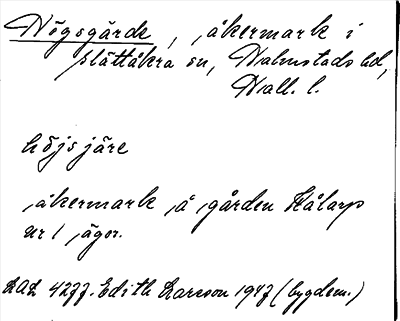 Högsgärde, åkermark i
Slättåkra sn, Halmstads hd,
Hall. l.
höjsjäre
åkermark å gården Kålarp
nr 1 äger.
LAL 4277. Edith Larsson 1947 (bygdem.)